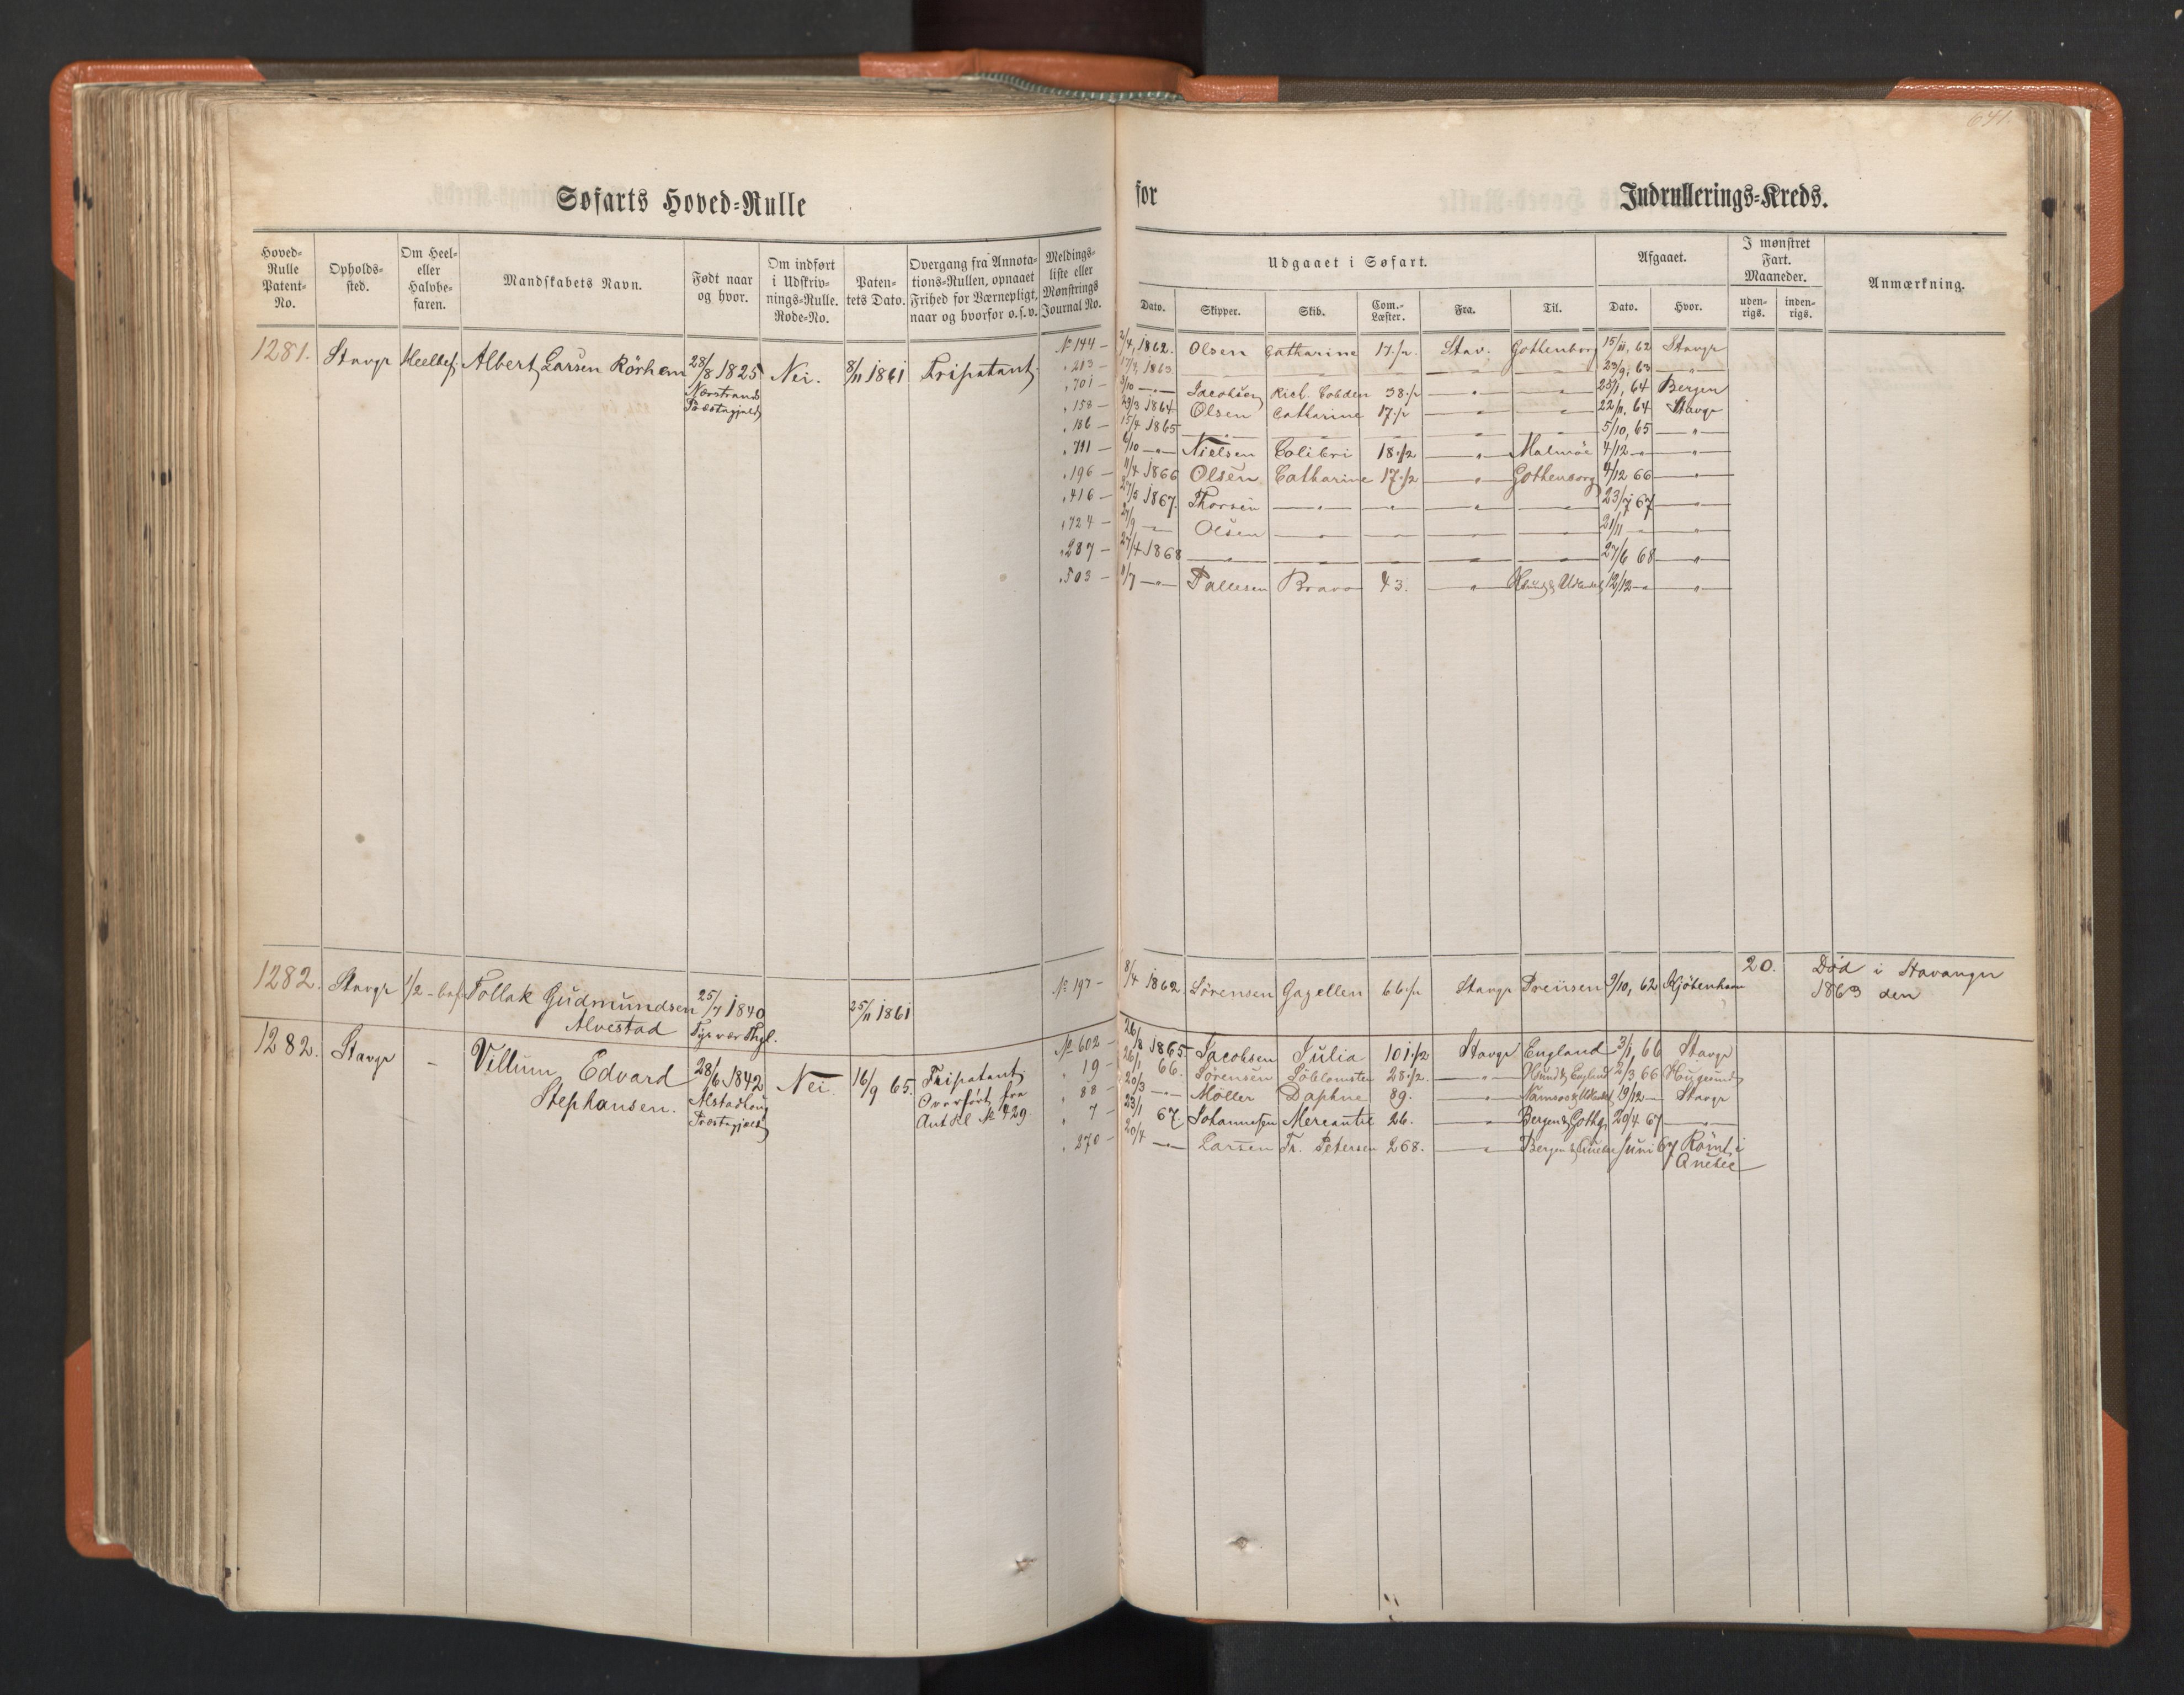 641.
Søfarts Hoved-Rulle
for
Indrullerings-Kreds.
Hoved-Rulle Patent-No.
Opholds-sted.
Om Heel- eller Halvbe-faren.
Mandskabets Navn.
Født naar og hvor.
Om indført i Udskriv-nings-Rulle. Rode-No.
Paten-tets Dato.
Overgang fra Annota-tions-Rullen, opnaaet Frihed for Værnepligt, naar og hvorfor o.s.v.
Meldings-liste eller Mønstrings Journal No.
Udgaaet i Søfart.
Afgaaet.
I mønstret Fart. Maaneder.
Anmærkning.
Dato. Skipper. Skib. Com.-Læster. Fra. Til. Dato. Hvor. uden-rigs. inden-rigs.
1281. Stavgr Heelbef. Albert Larsen Rörham 28/8 1825 Nei. 8/11 1861 Fripatent № 144 - 2/4, 1862. Olsen Catharine 17.½. Stav. Gothenborg 15/11, 62 Stavgr
Nærstrands Præstegjeld
" 213 - 17/4, 1863 — — — — — 23/9, 63 — " —
" 701 - 3/10 — " — Jacobsen Rich. Cobden 38.½ — " — — " — 25/1, 64 Bergen
" 158 - 29/3 1864 Olsen Catharine 17.½ — " — — " — 22/11, 64 Stavgr
" 186 - 15/4 1865 — " — — — — " — — " — 5/10, 65 — " —
" 791 - 6/10 — " — Nielsen Colibri 18.½ — " — Malmöe 4/12 — " — — " —
" 196 - 11/4 1866 Olsen Catharine 17.½ — " — Gothenborg 4/12 66 — " —
" 416 - 27/5 1867. Thorsen — " — — " — — " — — " — 23/7 67 — " —
" 724 - 27/9 — " — Olsen — " — — " — — " — — " — 21/11 — " — — " —
" 287 - 27/4 1868 — " — — " — — — " — — " — 27/6 68 — " —
" 503 - 11/7 — " — Pallesen Bravo 43. — " — 12/12 — " — — " —
1282. Stavgr ½-bef. Tollak Gudmundsen 25/7 1840 25/11 1861 № 197 - 8/4 1862. Sörensen Gazellen 66.½ Stavgr Preusen 9/10, 62 Kjöbenhavn 20. Död i Stavanger
Alvestad Tysvær Thgl. 1863 den
1282. Stavgr - Villum Edvard 28/6 1842 Nei 16/9 65. Fripatent № 602 - 26/8 1865. Jacobsen Julia 101.½ Stavgr England 3/1, 66 Stavgr
Stephansen. Alstadhoug Præstegjeld Overfört fra Ant Rl № 429
" 19 - 26/1 66. Sörensen Söblomsten 28.½. — " — England 2/3, 66 Haugesund
" 88 - 20/3 — " — Möller Daphne 89. — " — 19/12 — Stavgr
" 7 - 23/1 67. Johannesen Mercantil 26. — " — Bergen & Gothg. 29/4 67 — " —
" 270 - 20/4 — " — Larsen Th. Petersen 268. — " — Bergen & Quebec Juni 67 Römt i
Quebec